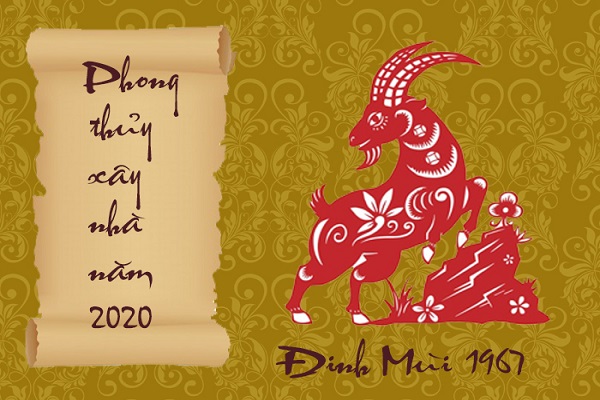 Phong
thủy
xây
nhà
năm
2020
Đinh Mùi 1967